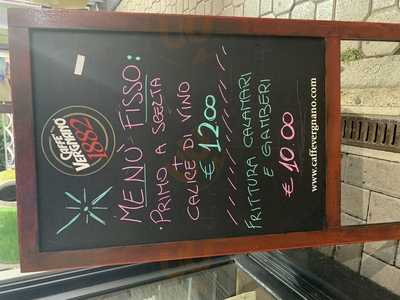 CAFFÈ
VERGNANO
1882
MENÙ FISSO:
• PRIMO A SCELTA
+
CALICE DI VINO
€ 12.00
FRITTURA CALAMARI
E GAMBERI
€ 10.00
www.caffevergnano.com